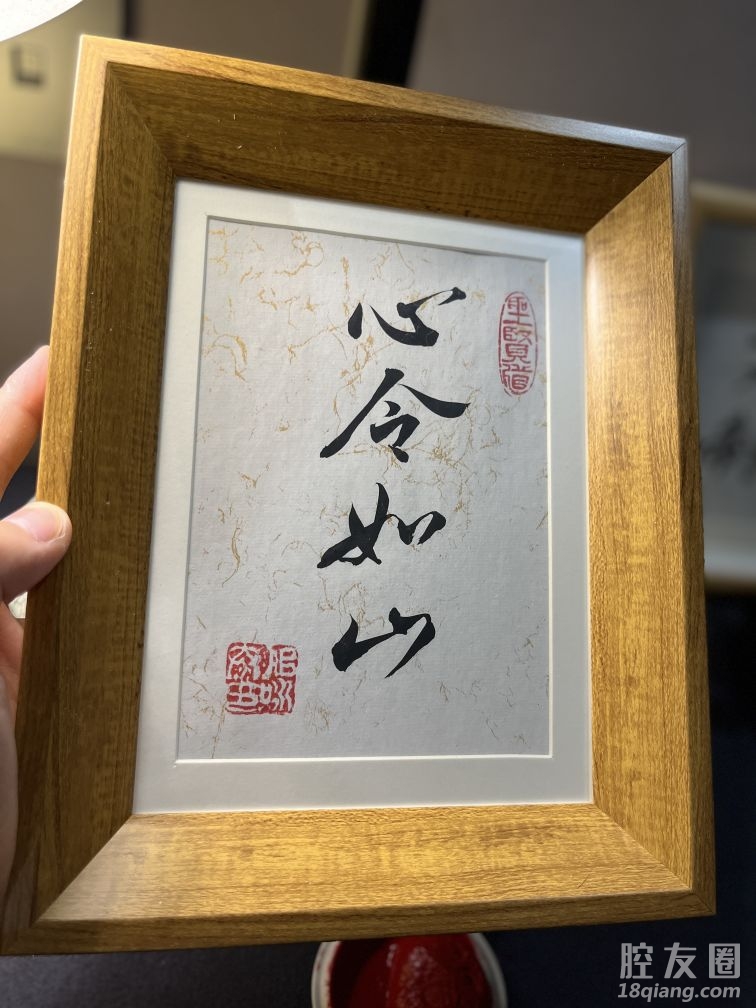 心令如山
聖賢道
腔友圈
18qiang.com